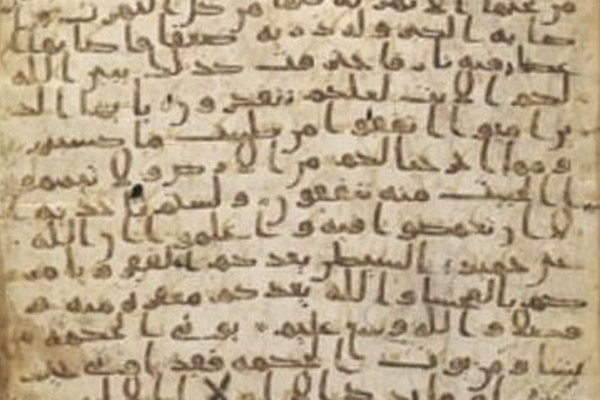 من تحتها الانهر له فيها من كل الثمرت وا
صابه الكبر وله ذريه ضعفا فاصابها ا
عصار فيه نار فاحترقت كذلك يبين الله
لكم الايت لعلكم تتفكرون يايها الذ
ين امنوا انفقوا من طيبت ما كسبتم
ومما اخرجنا لكم من الارض ولا تيممو
ا الخبيث منه تنفقون ولستم باخذيه ا
لا ان تغمضوا فيه واعلموا ان الله
غني حميد الشيطن يعدكم الفقر ويامر
كم بالفحشا والله يعدكم مغفره منه و
فضلا والله وسع عليم يوتي الحكمه من
يشا ومن يوت الحكمه فقد اوتي خيرا